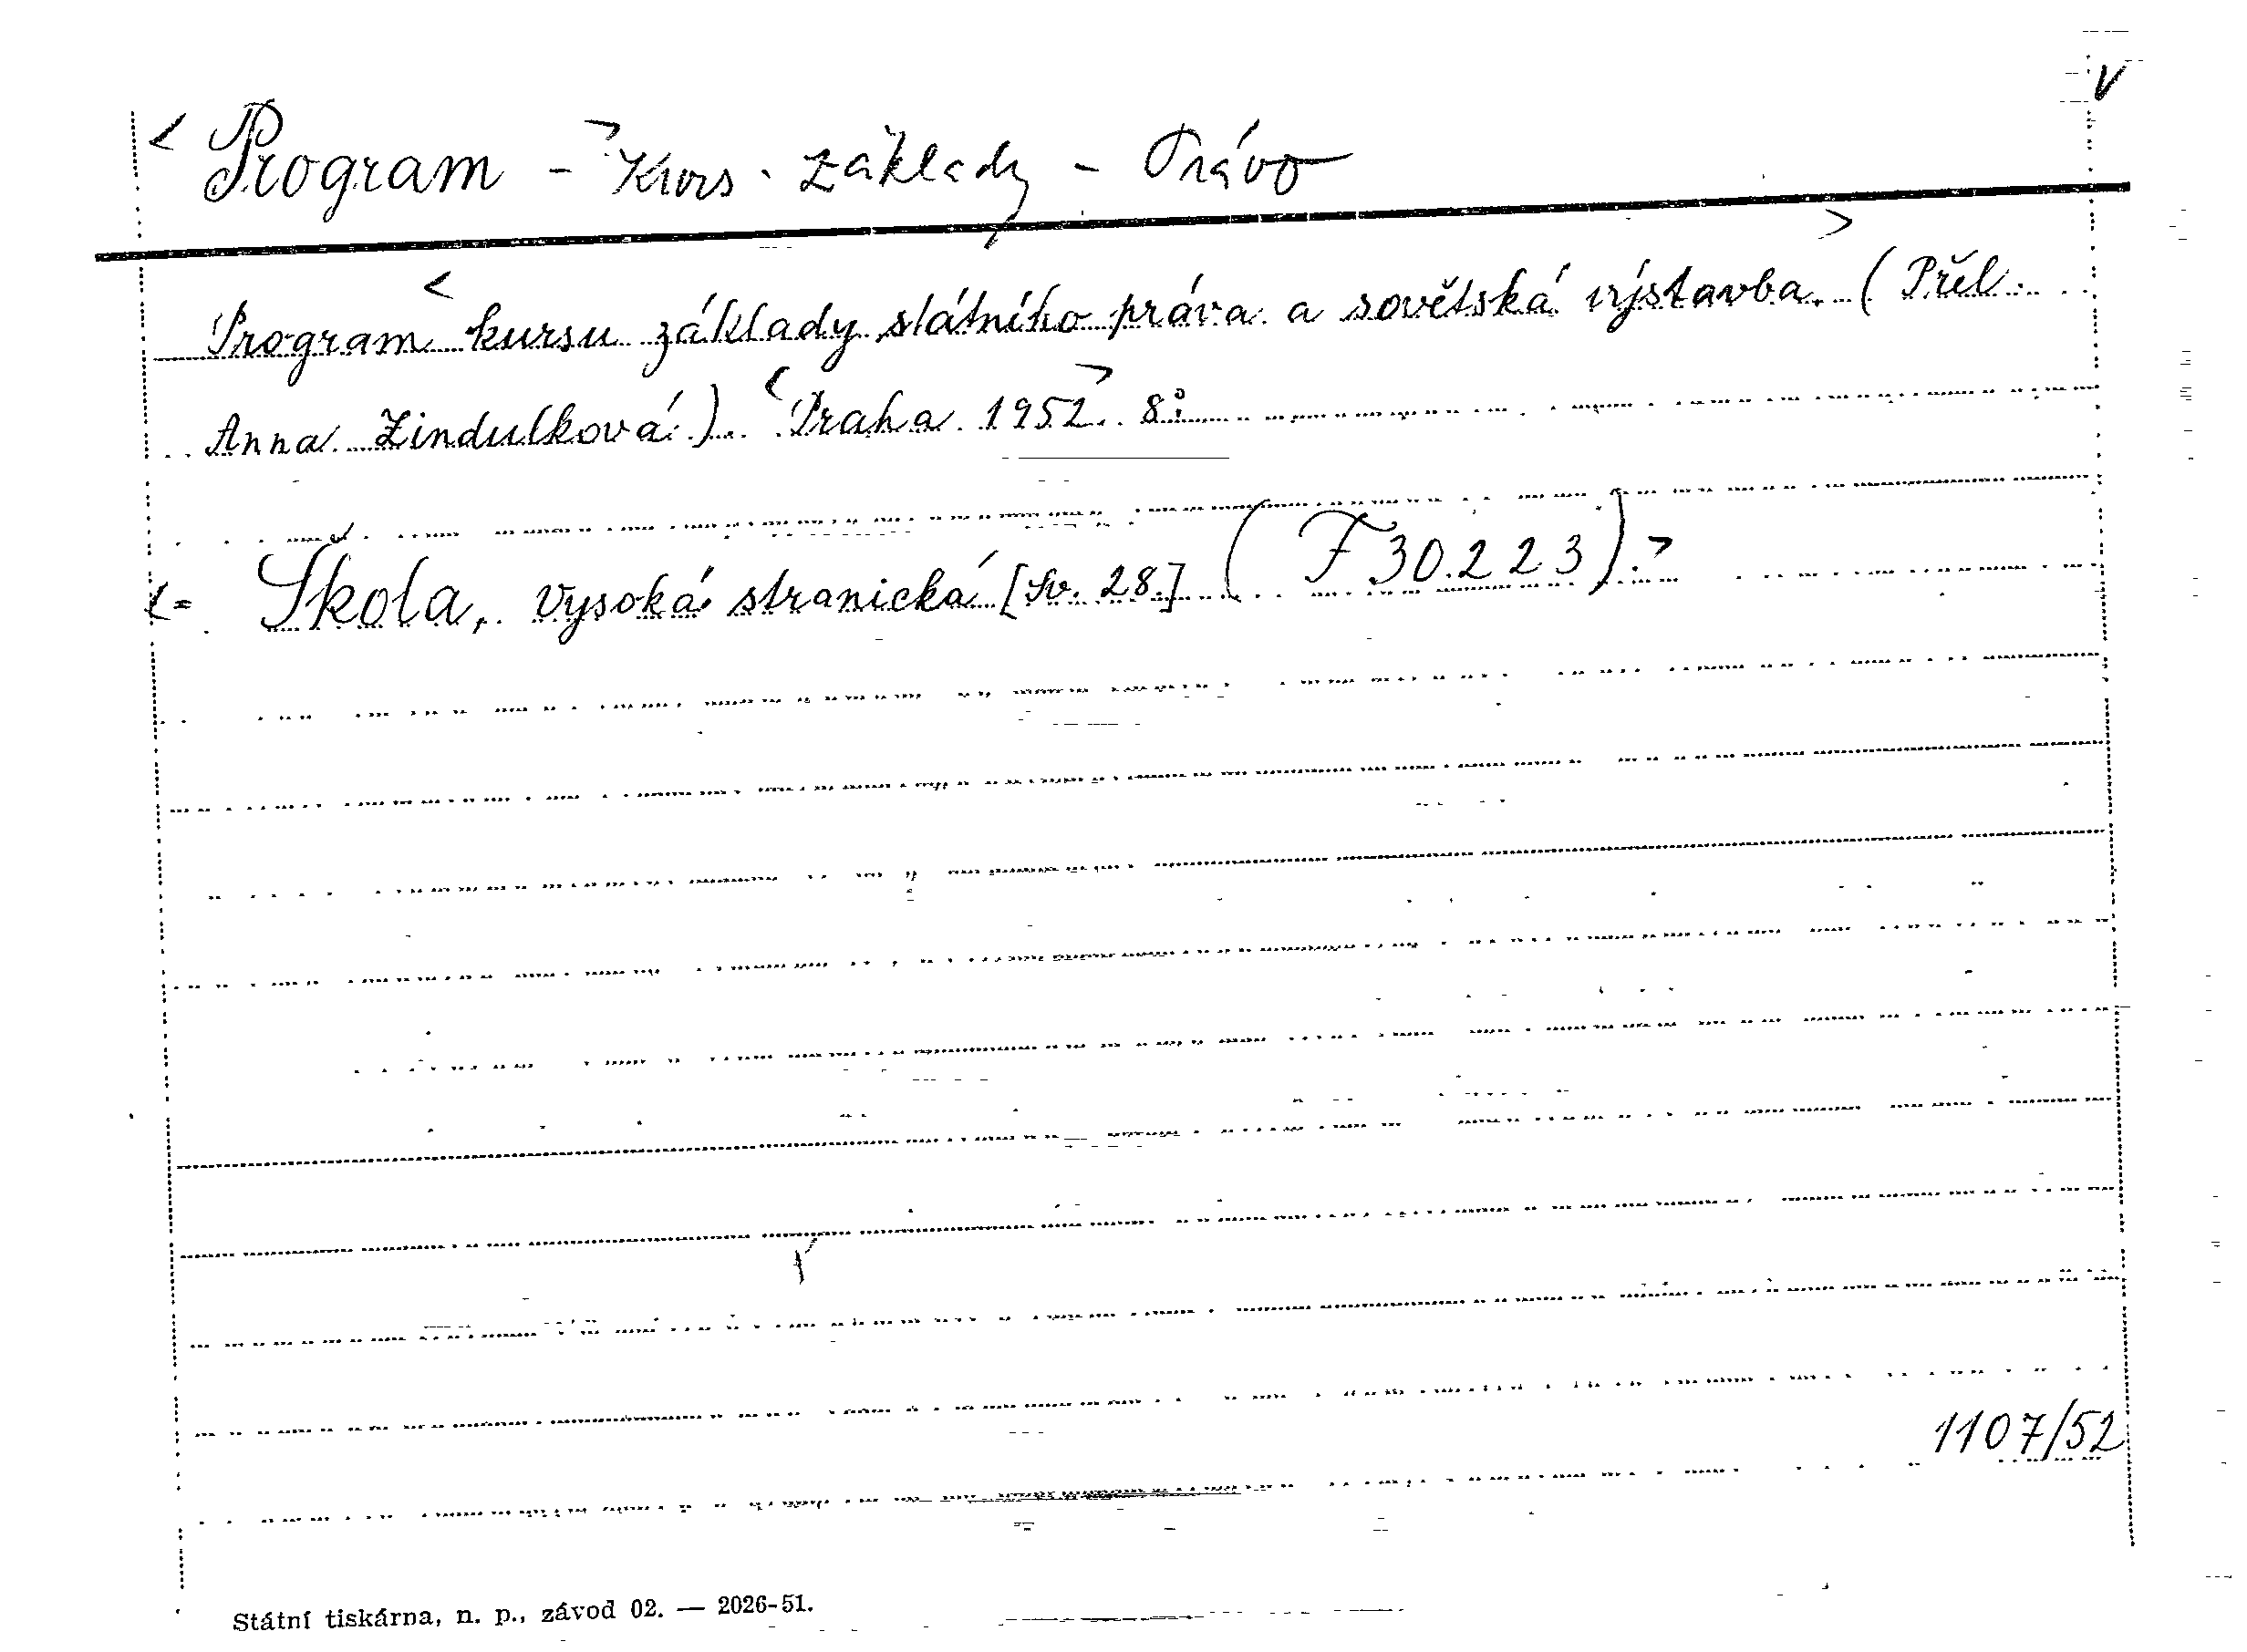 V
< Program - > Kurs - základy - Právo
Program < kursu základy státního práva a sovětská výstavba. > (Přel.
Anna Zindulková.). < Praha 1952 >. 8°.
<= Škola, vysoká stranická [Sv. 28.] (F 30.223). >
1107/52
Státní tiskárna, n. p., závod 02. — 2026-51.